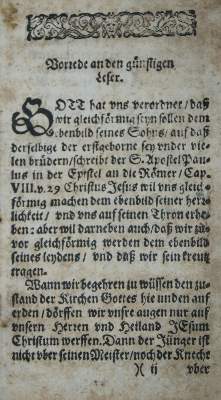 Vorrede an den günstigen
Leser.
GOTT hat vns verordnet / daß
wir gleichförmig seyn sollen dem
ebenbild seines Sohns / auf daß
derselbige der erstgeborne sey vnder vie-
len brüdern / schreibt der S. Apostel Pau-
lus in der Epistel an die Römer / Cap.
VIII. v. 29 Christus Jesus wil vns gleich-
förmig machen dem ebenbild seiner herr-
lichkeit / vnd vns auf seinen Thron erhe-
ben: aber wil darneben auch / daß wir zu-
vor gleichförmig werden dem ebenbild
seines leydens / vnd daß wir sein kreutz
tragen.
Wann wir begehren zu wüssen den zu-
stand der Kirchen Gottes hie unden auf
erden / dörffen wir vnsre augen nur auf
vnsern Herren vnd Heiland JEsum
Christum werffen. Dann der Jünger ist
nicht vber seinen Meister / noch der Knecht
ij vber